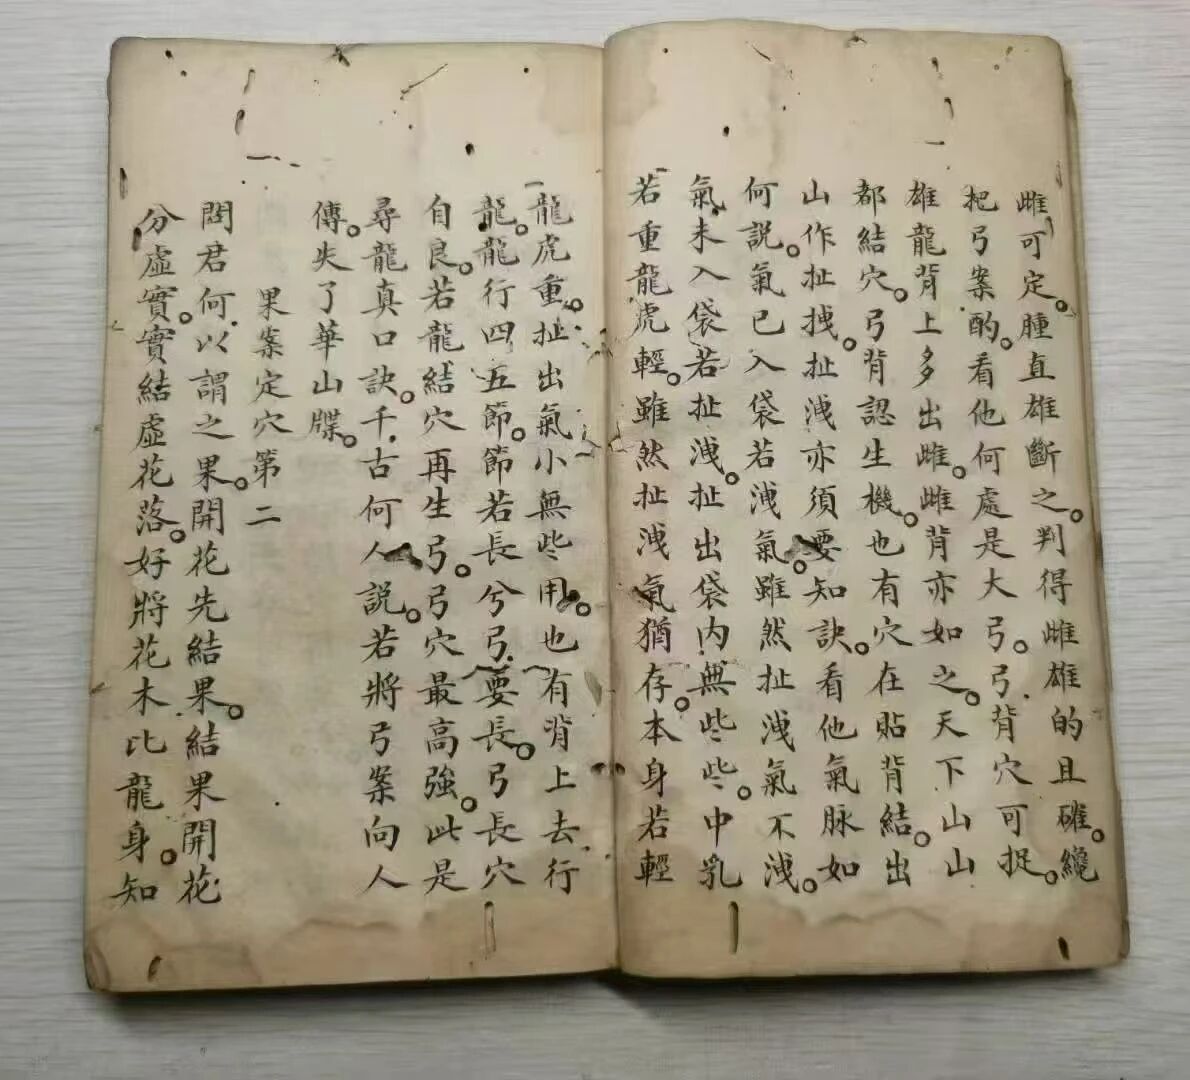 雌可定。腫直雄斷之。判得雌雄的且確。纔
把弓案酌。看他何處是大弓。弓背穴可捉。
雄龍背上多出雌。雌背亦如之。天下山山
都結穴。弓背認生機。也有穴在貼背結。出
山作扯拽。扯洩亦須要知訣。看他氣脉如
何說。氣已入袋若洩氣。雖然扯洩氣不洩。
氣未入袋若扯洩。扯出袋內無些些。中乳
若重龍虎輕。雖然扯洩氣猶存。本身若輕
龍虎重。扯出氣小無些用。也有背上去行
龍。龍行四五節。節若長兮弓要長。弓長穴
自良。若龍結穴再生弓。弓穴最高強。此是
尋龍真口訣。千古何人說。若將弓案向人
傳。失了華山牒。
果案定穴第二
問君何以謂之果。開花先結果。結果開花
分虛實。實結虛花落。好將花木比龍身。知